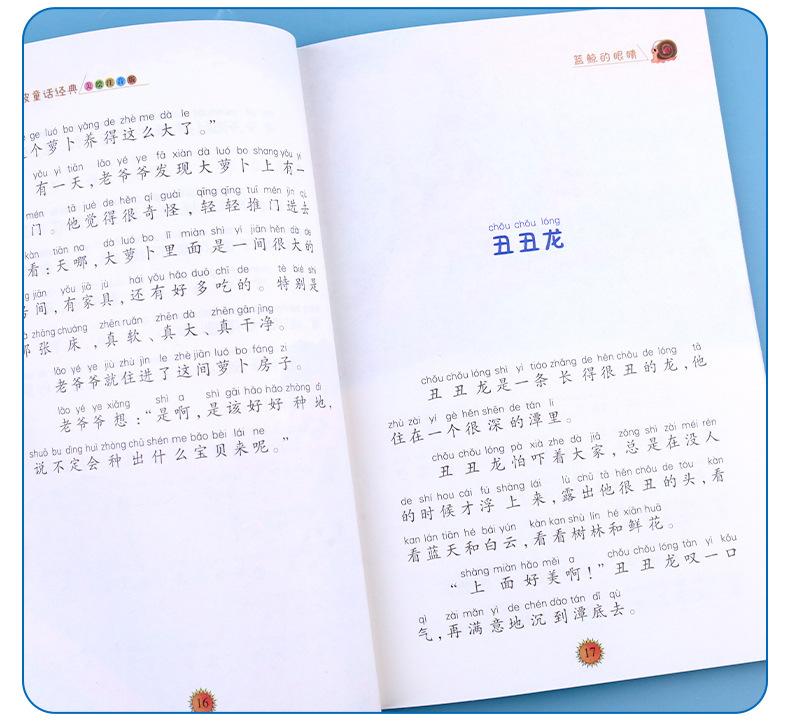 童话经典 美绘注音版
ge luó bo yǎng de zhè me dà le
个萝卜养得这么大了。”
yǒu yì tiān lǎo yé ye fā xiàn dà luó bo shang yǒu yí
有一天，老爷爷发现大萝卜上有一
mén tā jué de hěn qí guài qīng qīng tuī mén jìn qù
门。他觉得很奇怪，轻轻推门进去
kàn tiān na dà luó bo lǐ miàn shì yì jiān hěn dà de
看：天哪，大萝卜里面是一间很大的
jiān yǒu jiā jù hái yǒu hǎo duō chī de tè bié shì
房间，有家具，还有好多吃的。特别是
zhāng chuáng zhēn ruǎn zhēn dà zhēn gān jìng
那张床，真软、真大、真干净。
lǎo yé ye jiù zhù jìn le zhè jiān luó bo fáng zi
老爷爷就住进了这间萝卜房子。
lǎo yé ye xiǎng shì a shì gāi hǎo hǎo zhòng dì
老爷爷想：“是啊，是该好好种地，
shuō bu dìng huì zhòng chū shén me bǎo bèi lái ne
说不定会种出什么宝贝来呢。”
16
蓝鲸的眼睛
chǒu chǒu lóng
丑丑龙
chǒu chǒu lóng shì yì tiáo zhǎng de hěn chǒu de lóng tā
丑丑龙是一条长得很丑的龙，他
zhù zài yí gè hěn shēn de tán li
住在一个很深的潭里。
chǒu chǒu lóng pà xià zhe dà jiā zǒng shì zài méi rén
丑丑龙怕吓着大家，总是在没人
de shí hou cái fú shàng lái lù chū tā hěn chǒu de tóu kàn
的时候才浮上来，露出他很丑的头，看
kan lán tiān hé bái yún kàn kan shù lín hé xiān huā
看蓝天和白云，看看树林和鲜花。
shàng miàn hǎo měi a chǒu chǒu lóng tàn yì kǒu
“上面好美啊！”丑丑龙叹一口
qì zài mǎn yì de chén dào tán dǐ qù
气，再满意地沉到潭底去。
17